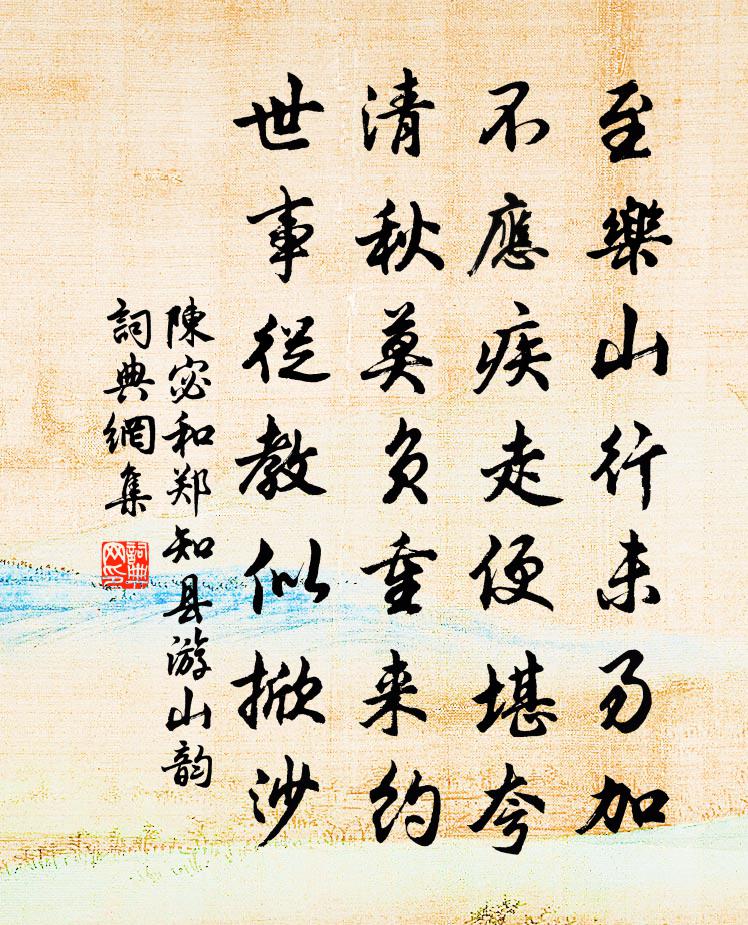 至樂山行未易加
不應疾走便堪夸
清秋莫負重来約
世事從教似掀沙
陳宓和郑知县游山韵
詞典網集
詞典网印